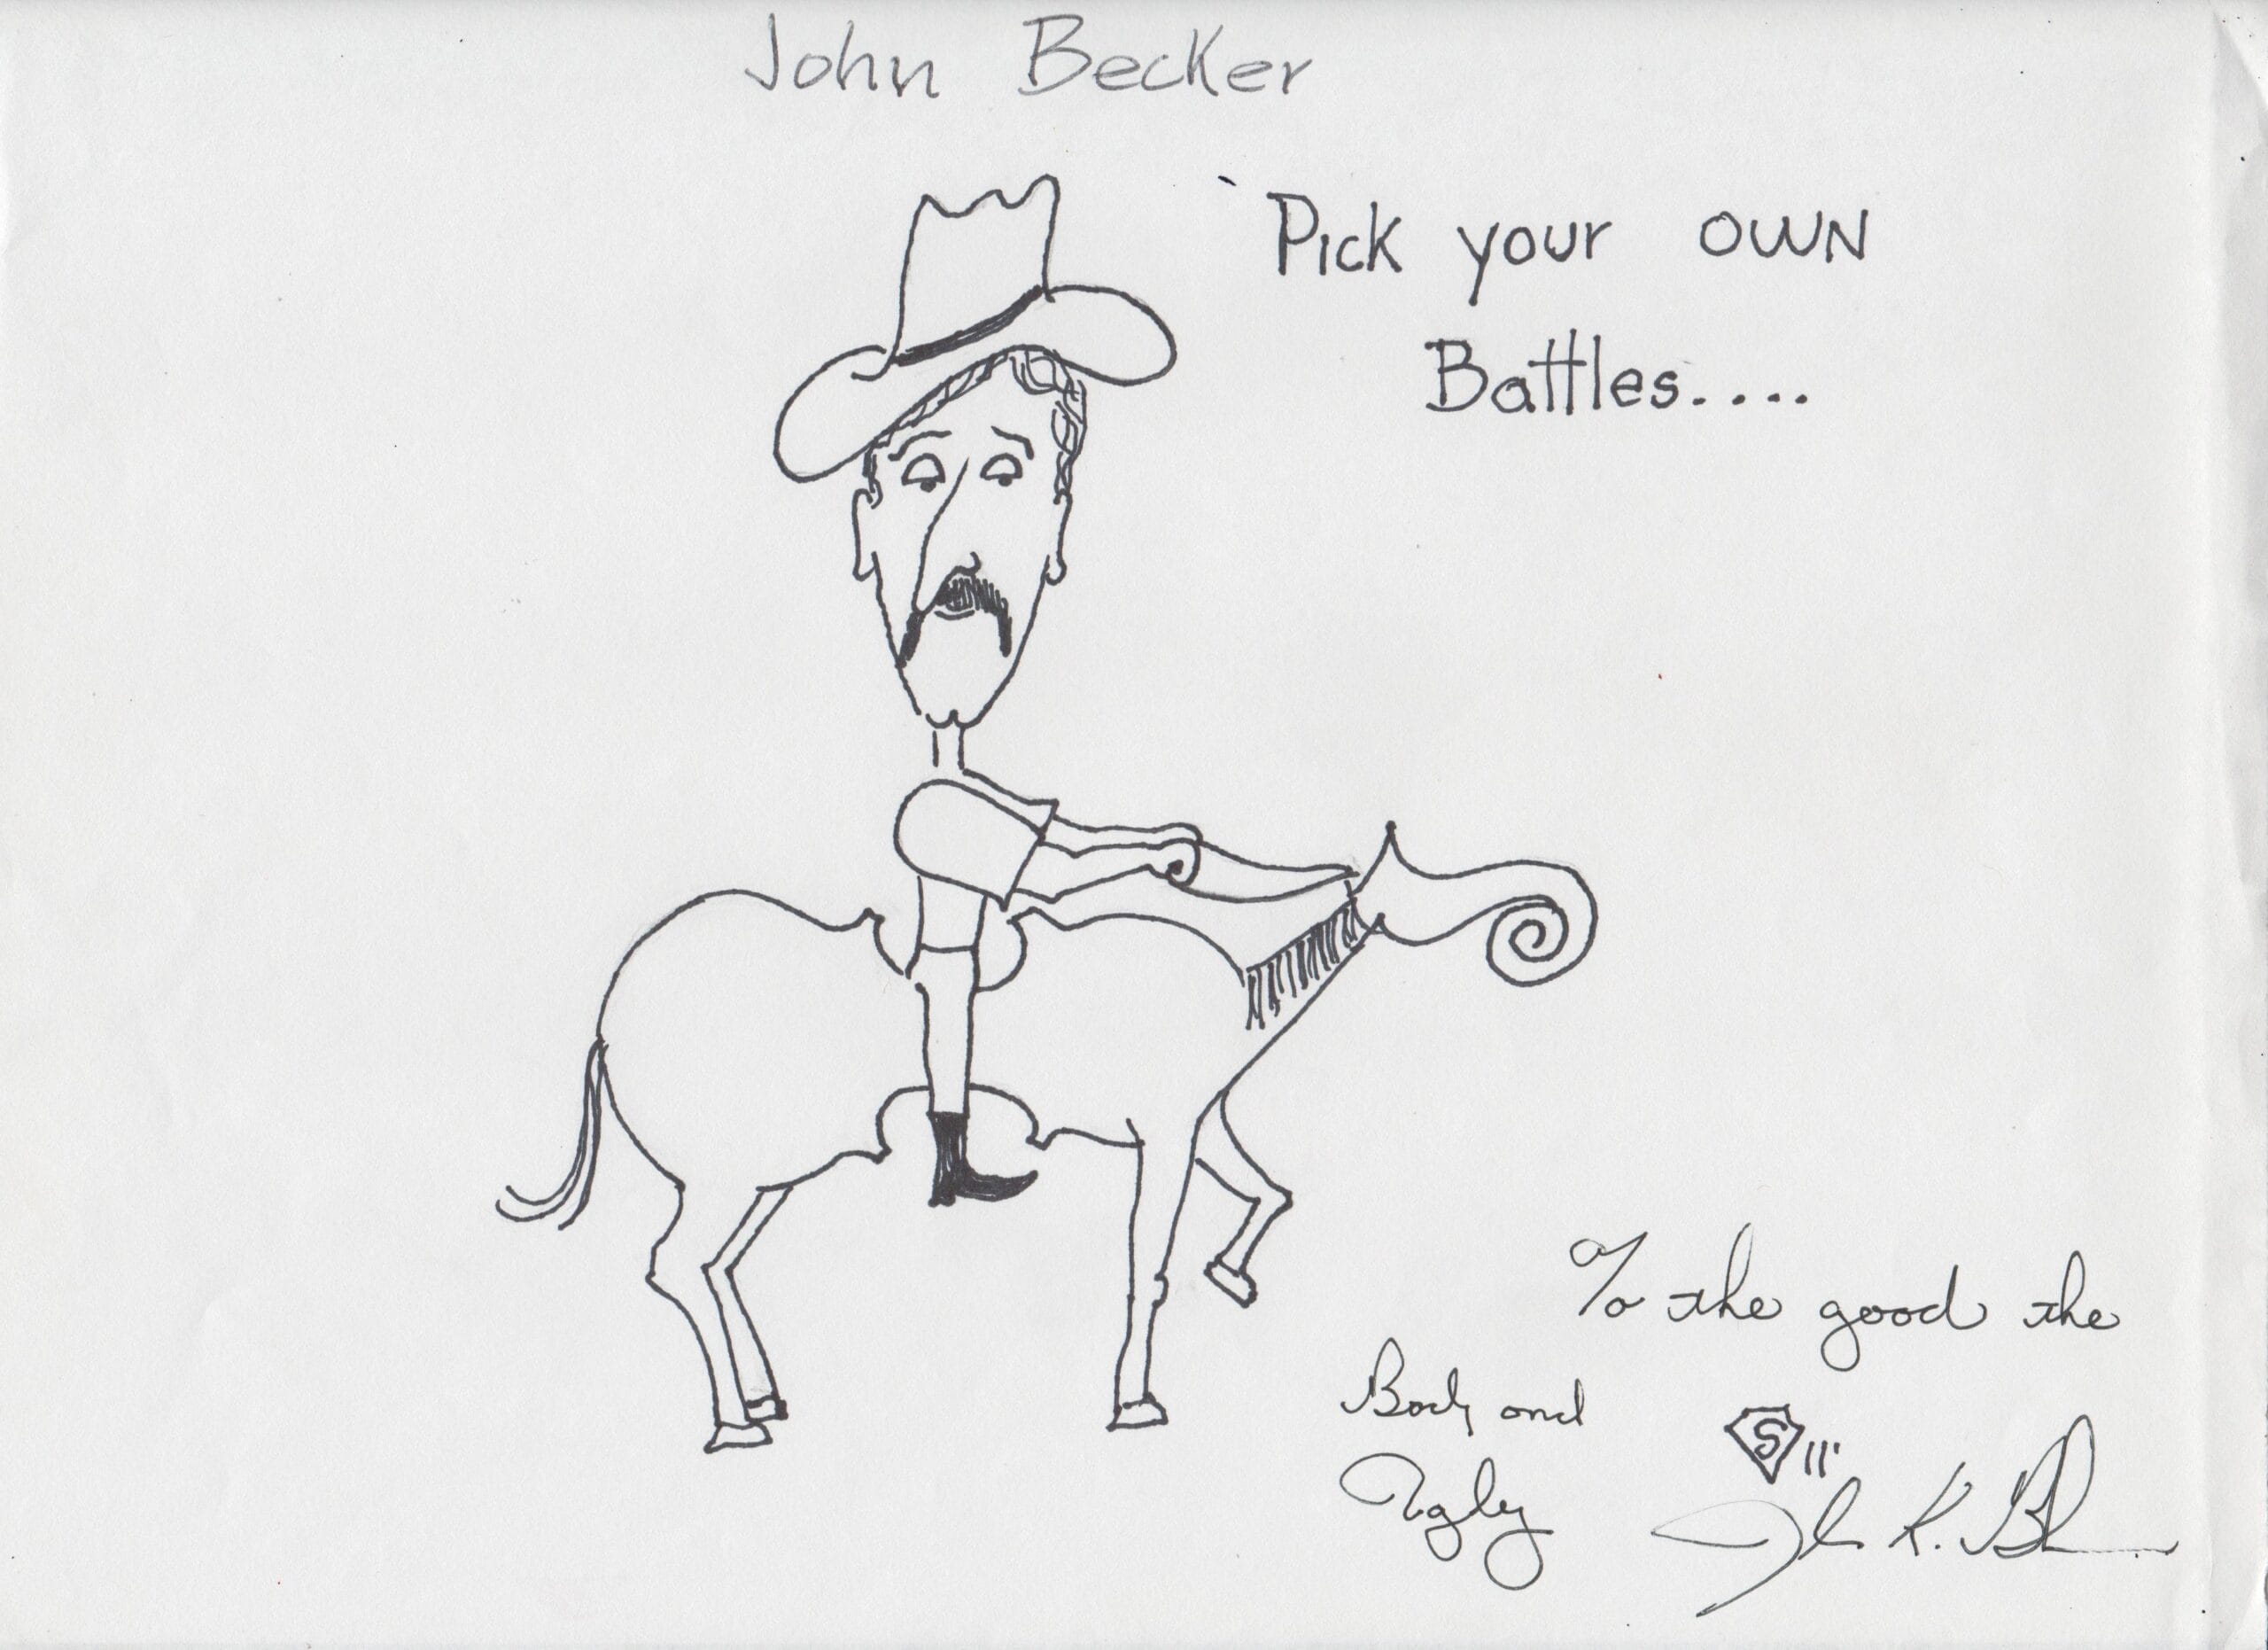 John Becker
Pick your OWN
Battles....
To the good the
Bad, and
Ugly
S
John K. B